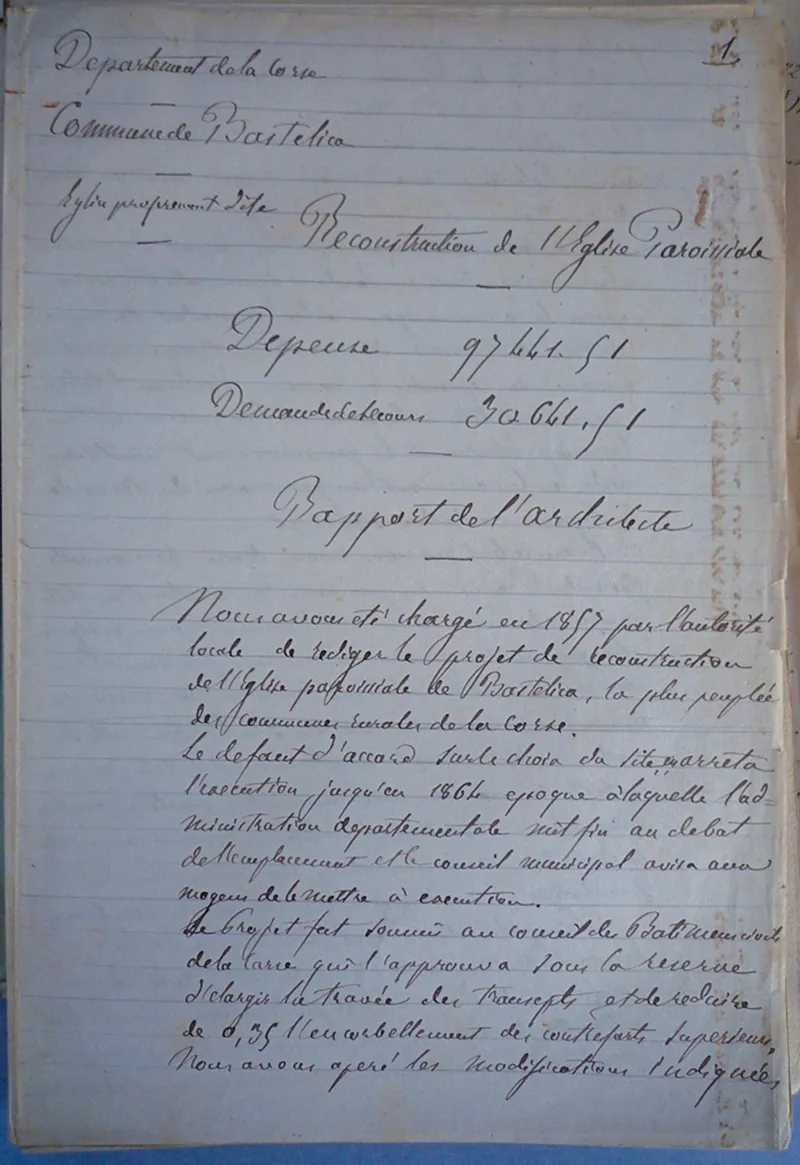 1
Departement de la Corse
Commune de Bastelica
Eglise proprement dite
Reconstruction de l'Eglise Paroissiale
Depense 97441.51
Demande de secours 30641.51
Rapport de l'architecte
Nous avons été chargé en 1857 par l'autorité
locale de rediger le projet de reconstruction
de l'Eglise paroissiale de Bastelica, la plus peuplée
des communes rurales de la Corse.
Le defaut d'accord sur le choix du site arreta
l'execution jusqu'en 1864 epoque à laquelle l'ad-
ministration departementale mit fin au debat
de l'emplacement et le conseil municipal avisa aux
moyens de le mettre à execution.
Le Projet fut soumis au conseil des Batimens civils
de la Corse qui l'approuva sous la reserve
d'elargir la travée des transepts et de reduire
de 0,35 l'encorbellement des contreforts superieurs.
Nous avons operé les modifications indiquées